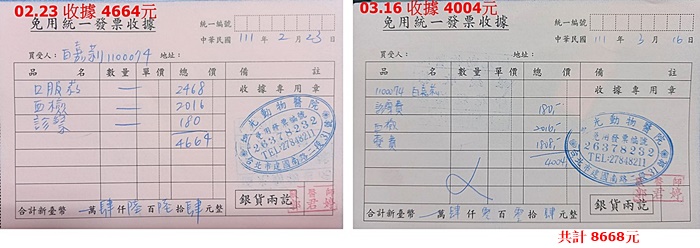 02.23 收據 4664元
免用統一發票收據
統一編號
中華民國 111 年 2 月 23 日
買受人: 白嘉莉 1100074 地址:
品 名 數量 單價 總價 備 註
口服藥 — 2468 收據專用章
血檢 — 2016
診察 — 180
4664
光動物醫院
免用發票編號
26378232
TEL:27848211
台北市建國南路二段31號
合計新臺幣 萬肆仟陸百陸拾肆元整
銀貨兩訖
03.16 收據 4004元
免用統一發票收據
統一編號
中華民國 111 年 3 月 16 日
買受人: 地址:
品 名 數量 單價 總價 備 註
1100074 白嘉莉 收據專用章
診療費 180.-
血檢 2016.-
藥費 1808.-
4004
光動物醫院
免用發票編號
26378232
TEL:27848211
台北市建國南路二段31號
合計新臺幣 萬肆仟零百零拾肆元整
銀貨兩訖
共計 8668元